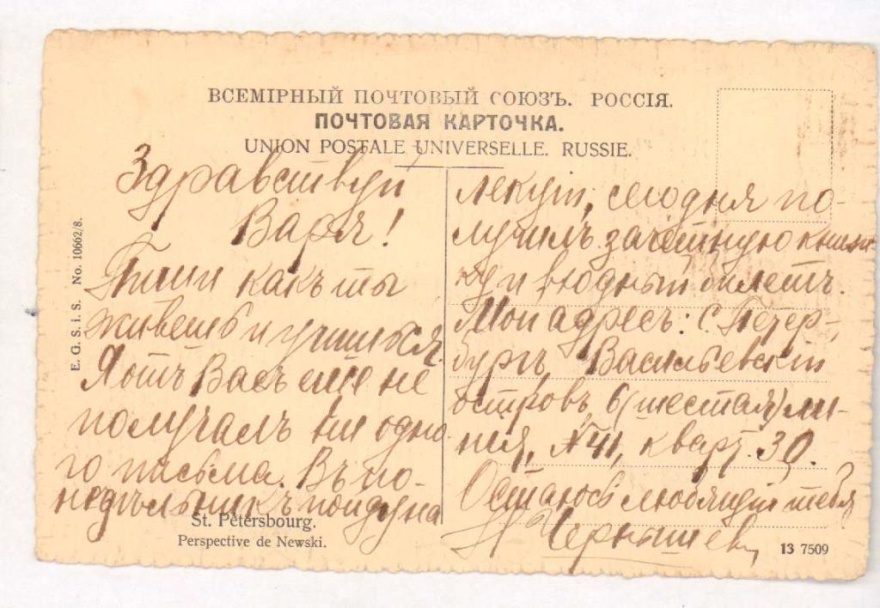 ВСЕМІРНЫЙ ПОЧТОВЫЙ СОЮЗЪ. РОССІЯ.
ПОЧТОВАЯ КАРТОЧКА.
UNION POSTALE UNIVERSELLE. RUSSIE.
E. G. S. i. S. No. 10662/8.
Здравствуй
Варя!
Пиши какъ ты
живешь и учишься.
Я отъ Васъ еще не
получалъ ни одно-
го письма. Въ по-
недѣльникъ пойду на
St. Pétersbourg.
Perspective de Newski.
лекціи, сегодня по-
лучилъ зачетную книж-
ку и входный билетъ.
Мой адресъ: С. Петер-
бургъ, Васильевскій
островъ 6 (шестая) ли-
нія, № 41, кварт. 30.
Остаюсь любящій тебя
Чернышев
13 7509